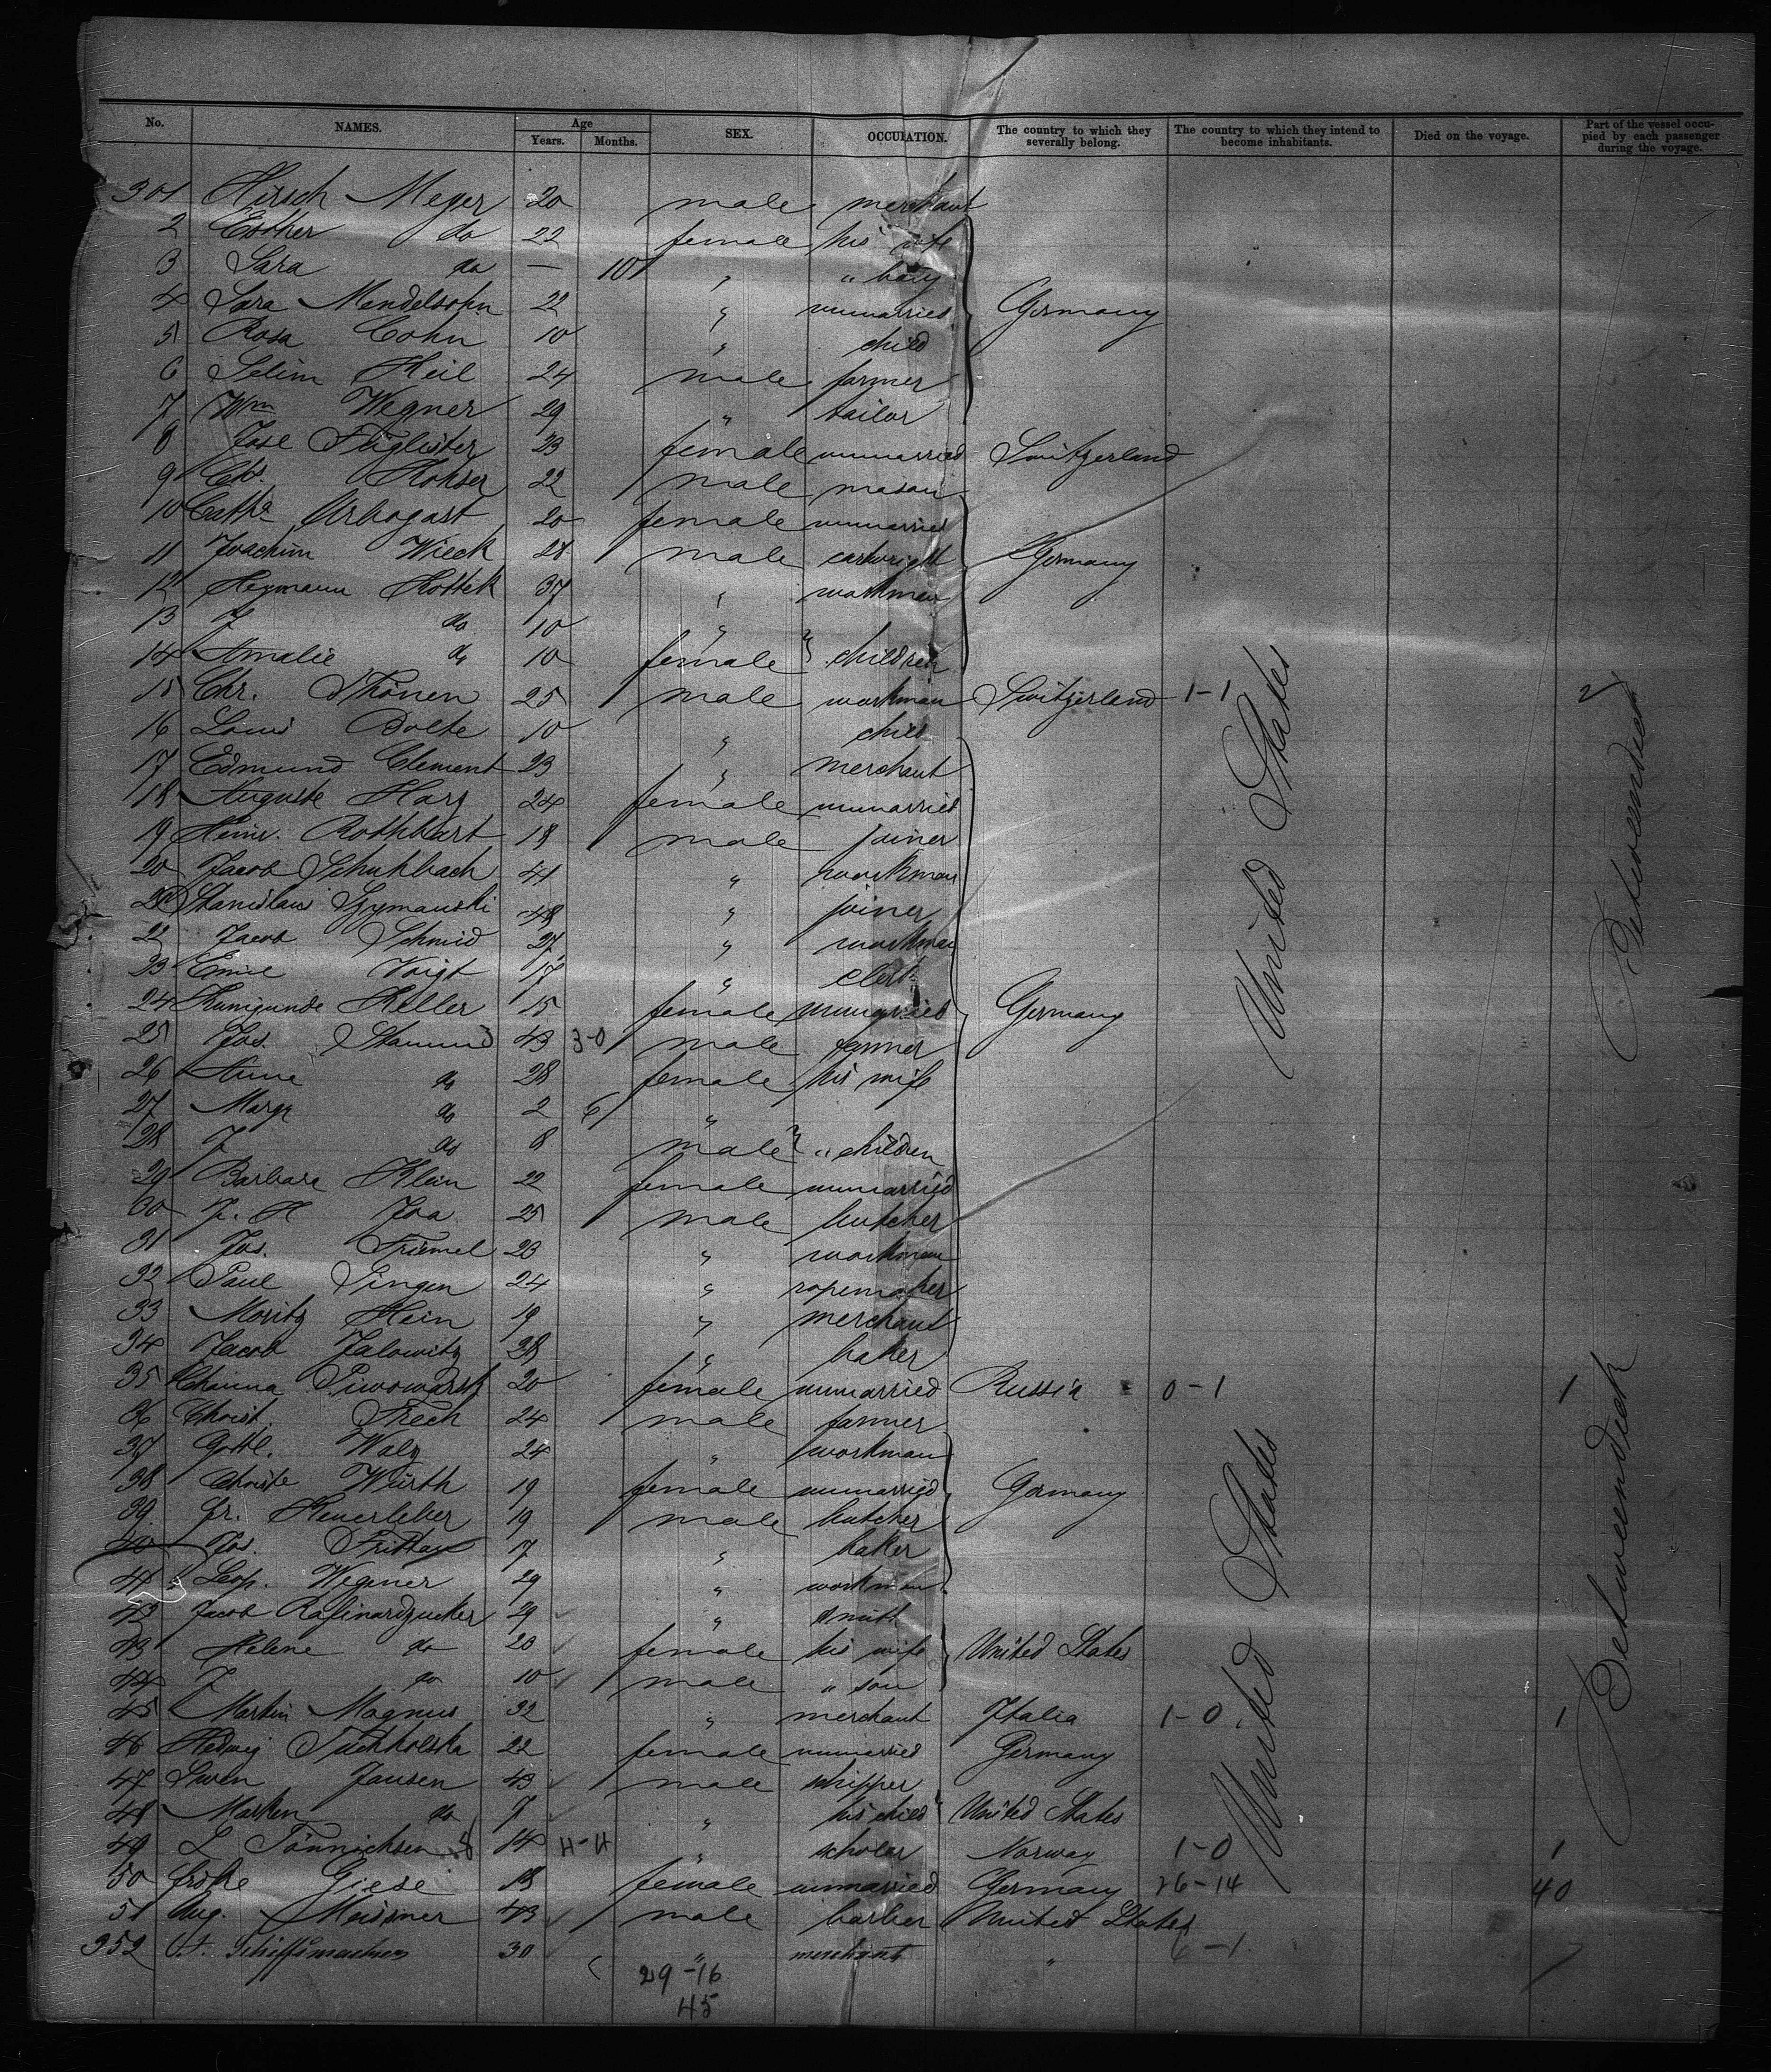 No. NAMES. Age Years. Months. SEX. OCCUPATION. The country to which they severally belong. The country to which they intend to become inhabitants. Died on the voyage. Part of the vessel occupied by each passenger during the voyage.
301 Hirsch Meyer 20 male merchant
2 Esther do 22 female his wife
3 Sara do — 10 " " baby
4 Sara Mendelsohn 22 " unmarried Germany
5 Rosa Cohn 10 " child
6 Selim Heil 24 male farmer
7 Wm Wegner 29 " tailor
8 Füglister 23 female unmarried Switzerland
9 Chr. 22 male mason
10 Cathe Arbogast 20 female unmarried
11 Joachim Wieck 28 male cartwright Germany
12 Heymann Kottek 37 " workman
13 J do 10 "
14 Amalie do 10 female } children
15 Chr. Thönen 25 male workman Switzerland 1-1 2
16 Louis Bolte 10 " child
17 Edmund Clement 23 " merchant
18 Auguste Harz 24 female unmarried
19 Heinr. Rothbart 18 male joiner
20 Jacob Schuhbach 41 " workman
21 Stanislaus Szymanski 48 " joiner
22 Jacob Schmid 27 " workman
23 Emil Voigt 17 " clerk
24 Kunigunde Keller 15 female unmarried Germany
25 Jos. 43 3-0 male farmer
26 Anne do 28 female his wife
27 Margr do 2 6 "
28 J do 8 male } " children
29 Barbara Klein 22 female unmarried
30 J. H 25 male butcher
31 Jos. Triemel 23 " workman
32 Paul Singen 24 " ropemaker
33 Moritz Hain 19 " merchant
34 Jacob Jalowitz 28 " baker
35 Channa 20 female unmarried Russia 0-1 1
36 Christ. Frech 24 male farmer
37 Gottl. Walz 24 " workman
38 Christe Würth 19 female unmarried Germany
39 Fr. 19 male butcher
40 Jos. Frittag 17 " baker
41 Leop. Wegener 29 " workman
42 Jacob Rafinardzucker 29 " smith
43 Helene do 20 female his wife United States
44 J do 10 male " son
45 Martin Magnus 32 " merchant Italia 1-0 1
46 Hedwig Tuchholska 22 female unmarried Germany
47 Swen Jansen 43 male shipper
48 Marken do 7 " his child United States
49 L Tönnichsen 14 H-H " scholar Norway 1-0 1
50 Giese 18 female unmarried Germany 26-14 40
51 Aug. Meissner 43 male barber United States
352 Schiffsmacher 30 " merchant " 6-1
29-16
45
United States
United States
Betweendeck
Betweendeck